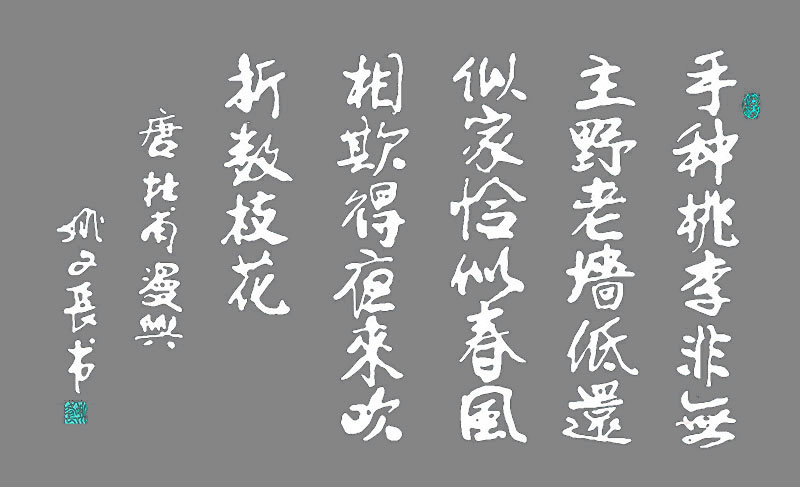 手种桃李非無
主野老墙低還
似家恰似春風
相欺得夜來吹
折数枝花
唐杜甫漫興
長书